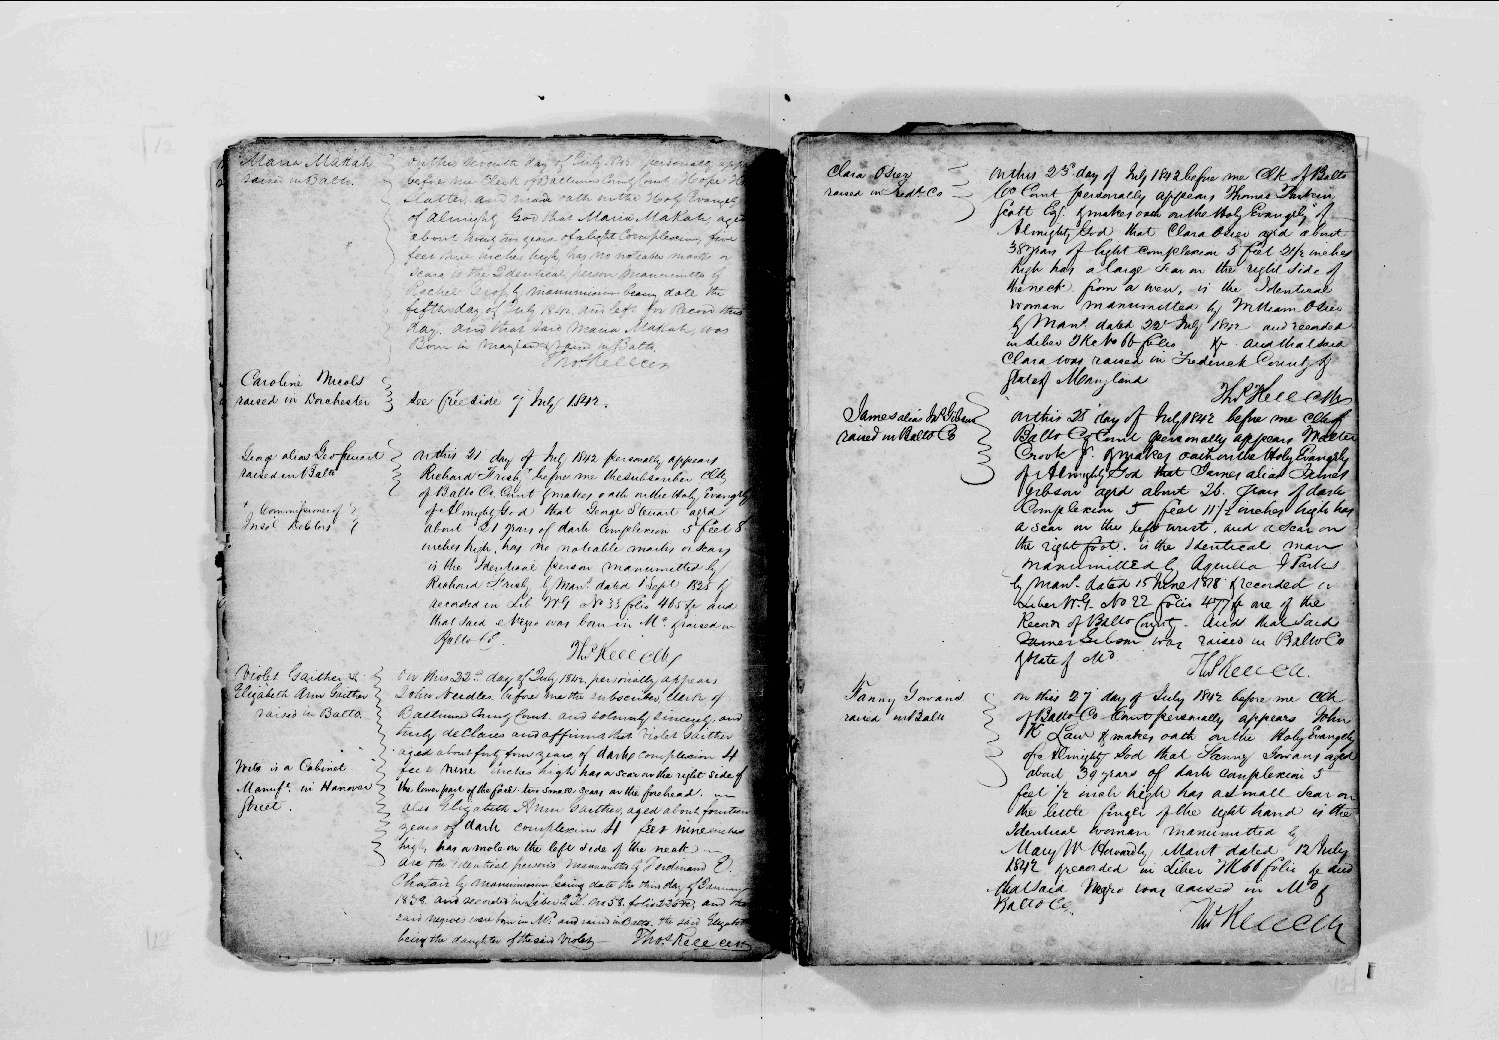 Maria Makah
raised in Balto.
On this seventh day of July 1842 personally
before me Clerk of Baltimore County Court Hope H
Slatter, and made oath on the Holy Evangely
of Almighty God that Maria Makah, aged
about years of a light Complexion, five
feet three inches high, has no notable marks or
scars is the Identical person manumitted by
Rachel by manumission bearing date the
fifth day of July 1842, and left for Record this
day. and that said Maria Makah, was
Born in Maryland & raised in Balto.
Thos Kell Clk
Caroline Nicols
raised in Dorchester
See free side 7 July 1842.
George alias Geo Steuart
raised in Balto
* Commissioner of
Insol Debtors
On this 21 day of July 1842 personally appears
Richard Frisby * before me the subscriber Clk
of Balto Co. Court & makes oath on the Holy Evangely
of Almighty God that George Steuart aged
about 21 years of dark Complexion 5 feet 8
inches high, has no noteable marks or scars
is the Identical person manumitted by
Richard Frisby by Mann. dated 1 Sept 1825 &
recorded in Lib W.G No 33 folio 465 &c and
that said Negro was born in Md. & raised in
Balto Co.
Thos Kell Clk
Violet Gaither &
Elizabeth Ann Gaither
raised in Balto.
Wits is a Cabinet
Manufr. in Hanover
Street.
On this 22nd. day of July 1842, personally appears
John Needles, before me the subscriber, Clerk of
Baltimore County Court. and solemnly sincerely, and
truly declares and affirms that Violet Gaither
aged about forty four years of dark complexion 4
feet nine inches high has a scar on the right side of
the lower part of the face two small scars on the forehead.
also Elizabeth Ann Gaither, aged about fourteen
years of dark complexion 4 feet nine inches
high, has a mole on the left side of the neck
are the Identical persons manumitted by Ferdinand E.
Chatard by manumission bearing date the third day of January
1838. and recorded in Liber T.K. No 58. folio 225 &c, and that
said negroes were born in Md. and raised in Balto. the said Elizabeth
being the daughter of the said Violet
Thos Kell Clk
Clara Osier
raised in Fredk. Co
On this 25 day of July 1842 before me Clk of Balto
Co Court personally appears Thomas Parkin
Scott Esq. & makes oath on the Holy Evangely of
Almighty God that Clara Osier aged about
38 years of light complexion 5 feet 2 1/2 inches
high has a large scar on the right side of
the neck from a wen, is the Identical
woman manumitted by William Osier
by Mann. dated 22 July 1842 and recorded
in Liber T K No 66 folio &c. And that said
Clara was raised in Frederick County &
State of Maryland
Thos Kell Clk
James alias Jas Gibson
raised in Balto Co
On this 25 day of July 1842 before me Clk of
Balto Co Court personally appears Walter
Crook Jr. & makes oath on the Holy Evangely
of Almighty God that James alias James
Gibson aged about 26 years of dark
Complexion 5 feet 11 1/2 inches high has
a scar on the left wrist, and a scar on
the right foot. is the Identical man
manumitted by Aquilla
by Mann. dated 15 June & recorded in
Liber W.G. No 22 folio 477 &c one of the
Records of Balto County. And that said
James Gibson was raised in Balto Co
& State of Md
Thos Kell Clk.
Fanny Gowans
raised in Balto
On this 27 day of July 1842 before me Clk
of Balto Co Court personally appears John
K Law & makes oath on the Holy Evangely
of Almighty God that Fanny Gowans aged
about 39 years of dark complexion 5
feet 1/2 inch high has a small scar on
the little finger of the right hand is the
Identical woman manumitted by
Mary W by Mant dated 12 July
1842 recorded in Liber T K 66 folio &c and
that said Negro was raised in Md &
Balto Co.
Thos Kell Clk